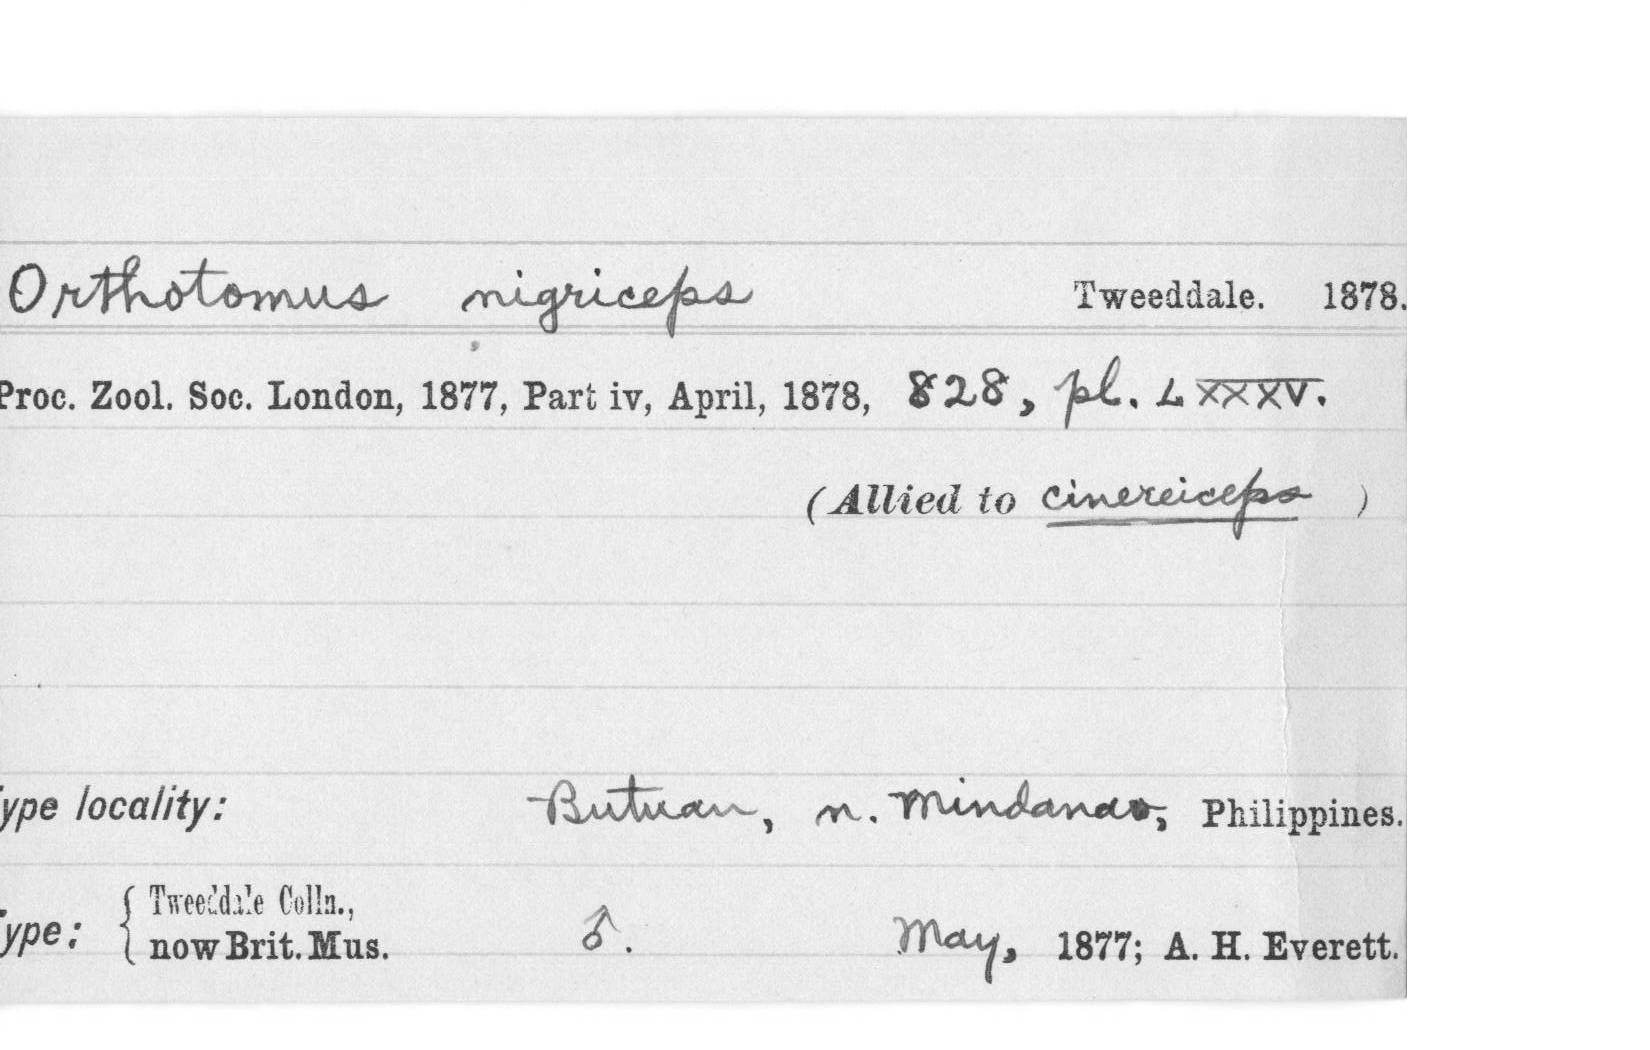 Orthotomus nigriceps Tweeddale. 1878.
Proc. Zool. Soc. London, 1877, Part iv, April, 1878, 828, pl. LXXXV.
(Allied to cinereiceps )
Type locality: Butuan, n. Mindanao, Philippines.
Type: { Tweeddale Colln.,
now Brit. Mus. ♂. May, 1877; A. H. Everett.